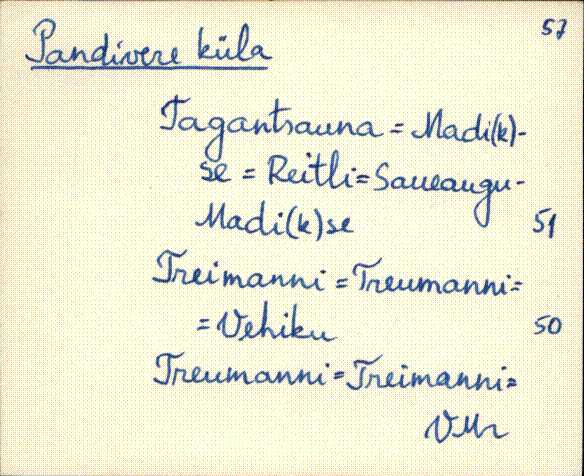 57
Pandivere küla
Tagantsauna = Madi(k)-
se = Reitli = Saueaugu-
Madi(k)se 51
Treimanni = Treumanni =
= Vehiku 50
Treumanni = Treimanni =